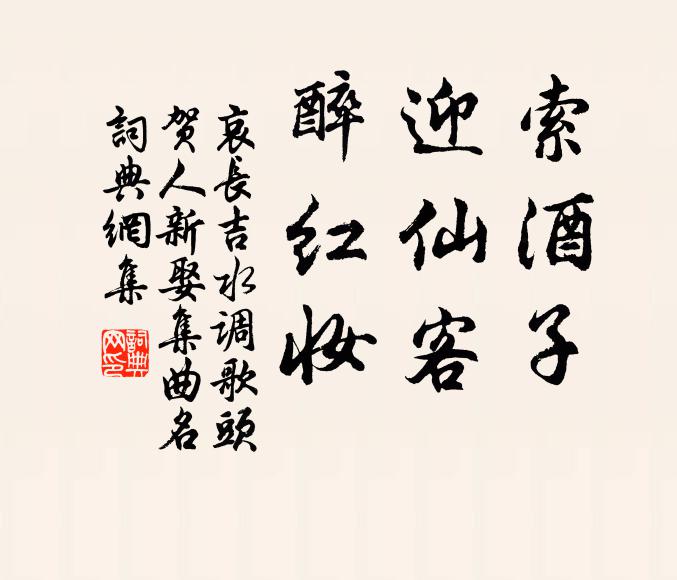 索酒子
迎仙客
醉红妆
哀長吉水调歌頭
贺人新娶集曲名
詞典網集
詞典網印